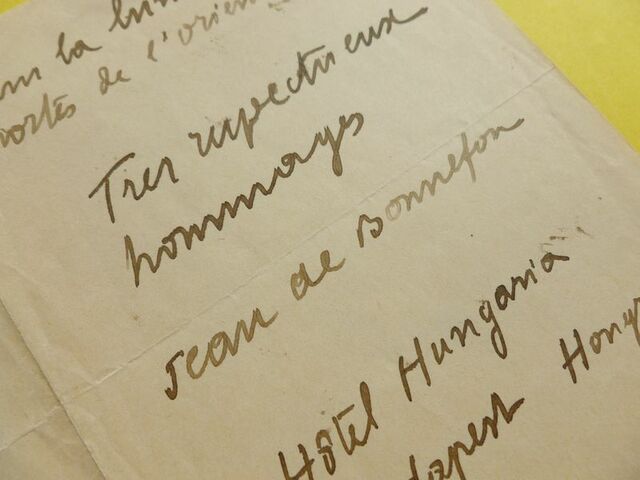 la
portes de l'orient
Tres respectueux
hommages
Jean de Bonnefon
Hôtel Hungaria